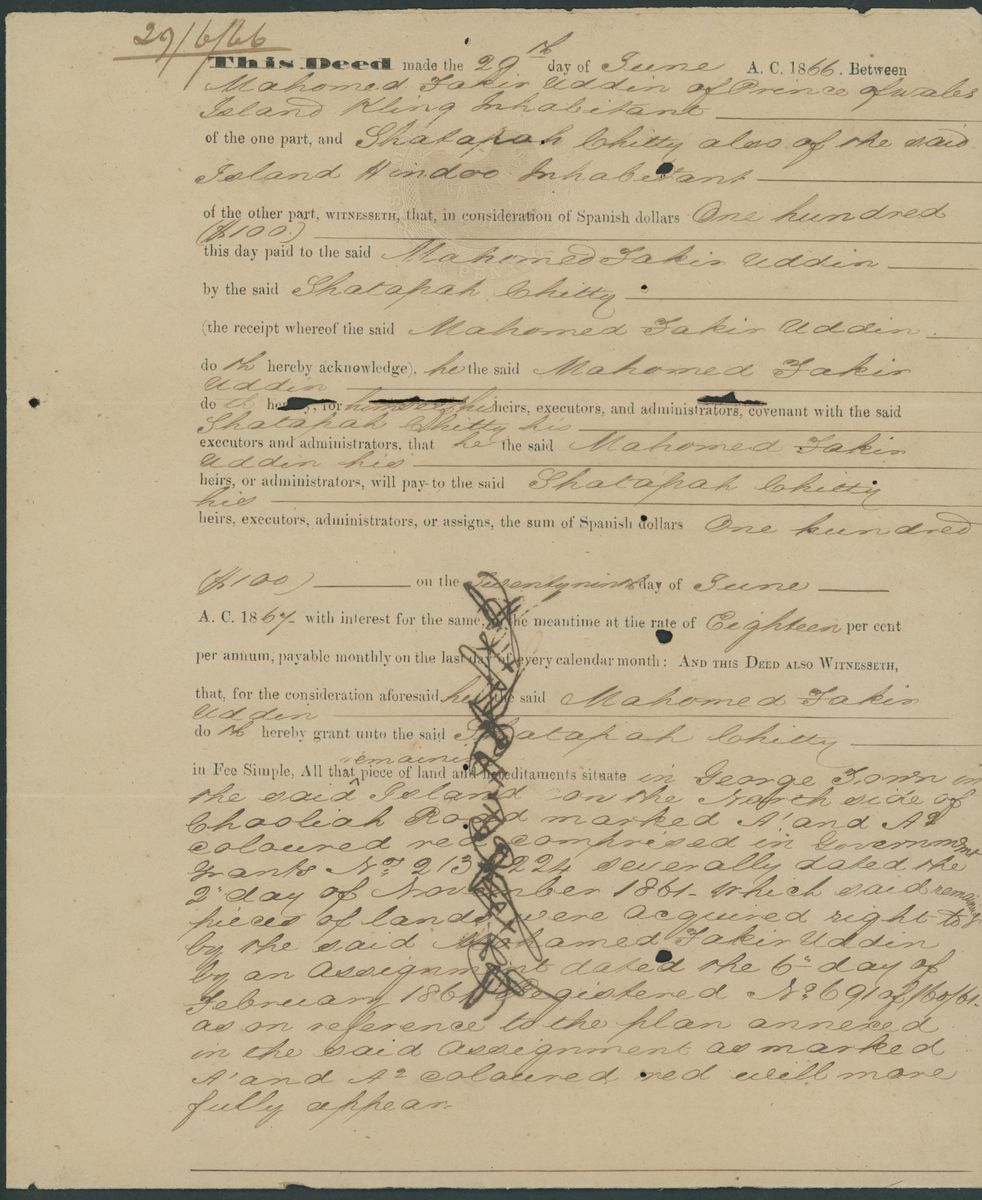 29/6/66
This Deed made the 29th day of June A. C. 1866. Between
Mahomed Fakir Uddin of Prince of wales
Island Kling Inhabitant
of the one part, and Shatapah Chitty also of the said
Island Hindoo Inhabitant
of the other part, WITNESSETH, that, in consideration of Spanish dollars One hundred
($100)
this day paid to the said Mahomed Fakir Uddin
by the said Shatapah Chitty
(the receipt whereof the said Mahomed Fakir Uddin
do th hereby acknowledge), he the said Mahomed Fakir
Uddin
do th hereby, for himself his heirs, executors, and administrators, covenant with the said
Shatapah Chitty his
executors and administrators, that he the said Mahomed Fakir
Uddin his
heirs, or administrators, will pay to the said Shatapah Chitty
his
heirs, executors, administrators, or assigns, the sum of Spanish dollars One hundred
($100) on the Twentyninth day of June
A. C. 1867 with interest for the same, in the meantime at the rate of Eighteen per cent
per annum, payable monthly on the last day of every calendar month: AND THIS DEED ALSO WITNESSETH,
that, for the consideration aforesaid, he the said Mahomed Fakir
Uddin
do th hereby grant unto the said Shatapah Chitty
remaining
in Fee Simple, All that piece of land and hereditaments situate in George Town in
the said Island on the North side of
Chooliah Road marked A1 and A2
coloured red comprised in Government
Grants No. 213 224 severally dated the
2 day of November 1861 which said remaining
pieces of lands were acquired right to
by the said Mahamed Fakir Uddin
by an Assignment dated the 6th day of
February 1861 Registered No. 691 of
as on reference to the plan annexed
in the said Assignment as marked
A1 and A2 coloured red will more
fully appear.